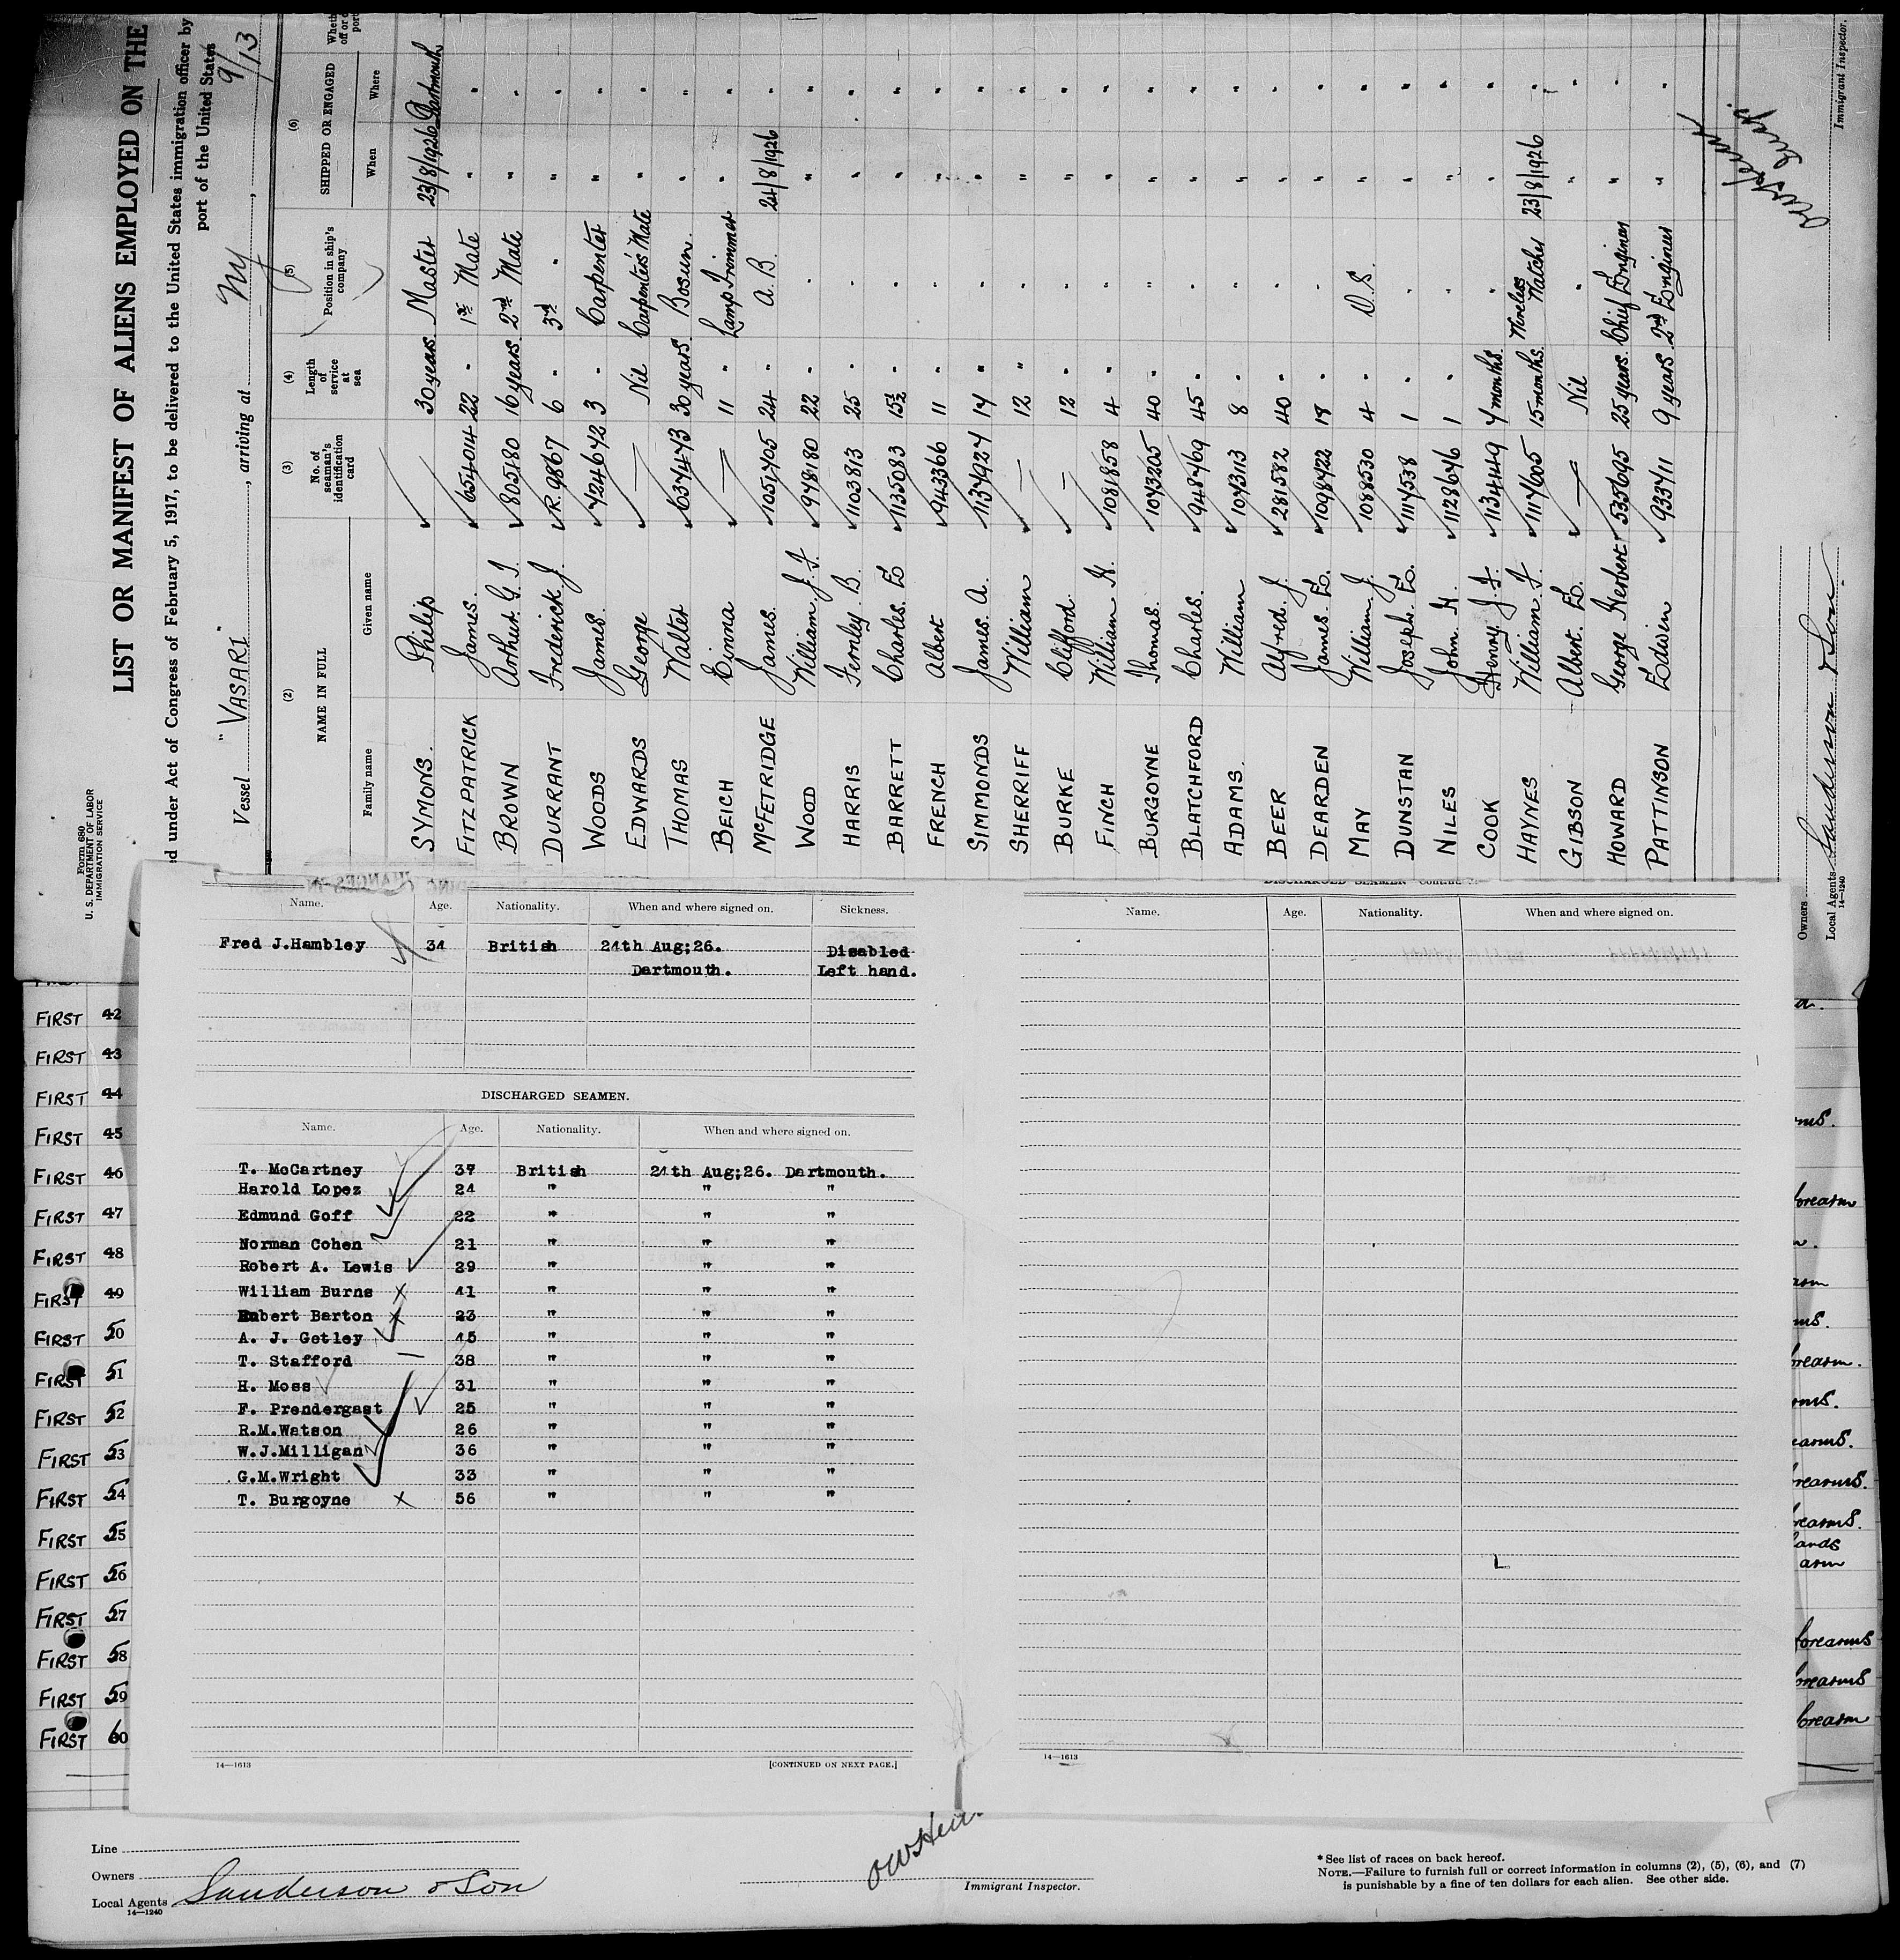 Form 680
U. S. DEPARTMENT OF LABOR
IMMIGRATION SERVICE
LIST OR MANIFEST OF ALIENS EMPLOYED ON THE
ed under Act of Congress of February 5, 1917, to be delivered to the United States immigration officer by
port of the United States
Vessel "VASARI", arriving at NY, 9/13
(2) (3) (4) (5) (6)
NAME IN FULL No. of seaman's identification card Length of service at sea Position in ship's company SHIPPED OR ENGAGED
Family name Given name When Where
SYMONS. Philip 30 years. Master 23/8/1926 Dartmouth
FITZPATRICK James. 654014 22 " 1st Mate " "
BROWN Arthur. G. T. 805180 16 years. 2nd Mate " "
DURRANT Frederick J. R.9867 6 " 3rd " " "
WOODS James. 724672 3 " Carpenter " "
EDWARDS George — Nil Carpenter's Mate " "
THOMAS Walter 637473 30 years. Bosun. " "
BEICH Cinna — 11 " Lamp Trimmer " "
McFETRIDGE James. 1051705 24 " A. B. 24/8/1926 "
WOOD William. J. F. 978180 22 " " " "
HARRIS Fernley. B. 1103813 25 " " " "
BARRETT Charles. E. 1135083 15½ " " " "
FRENCH Albert 943366 11 " " " "
SIMMONDS James. A. 1137927 14 " " " "
SHERRIFF William — 12 " " " "
BURKE Clifford. — 12 " " " "
FINCH William H. 1081858 4 " " " "
BURGOYNE Thomas. 1073205 40 " " " "
BLATCHFORD Charles. 948769 45 " " " "
ADAMS. William 1073113 8 " " " "
BEER Alfred. J. 281582 40 " " " "
DEARDEN James. E. 1098722 18 " " " "
MAY William J. 1088530 4 " O.S. " "
DUNSTAN Joseph. E. 1117538 1 " " " "
NILES John. H. 1128676 1 " " " "
COOK Henry J. F. 1134449 7 months. " " "
HAYNES William. F. 1117605 15 months. Wireless Watcher 23/8/1926 "
GIBSON Albert. E. — Nil " " "
HOWARD George Herbert 535695 25 years. Chief Engineer " "
PATTINSON Edwin 933711 9 years. 2nd Engineer " "
Owners
Local Agents Sanderson & Son.
14—1240
Immigrant Inspector.
Name. Age. Nationality. When and where signed on. Sickness.
Fred J.Hambley 34 British 24th Aug;26. Disabled
Dartmouth. Left hand.
DISCHARGED SEAMEN.
Name. Age. Nationality. When and where signed on.
T. McCartney 37 British 24th Aug;26. Dartmouth.
Harold Lopez 24 " " "
Edmund Goff 22 " " "
Norman Cohen 21 " " "
Robert A. Lewis 29 " " "
William Burns 41 " " "
Robert Barton 23 " " "
A. J. Gatley 45 " " "
T. Stafford 38 " " "
H. Moss 31 " " "
F. Prendergast 25 " " "
R.M.Watson 26 " " "
W.J.Milligan 36 " " "
G.M.Wright 33 " " "
T. Burgoyne 56 " " "
14—1613
[CONTINUED ON NEXT PAGE.]
Name. Age. Nationality. When and where signed on.
14—1613
FIRST 42
FIRST 43
FIRST 44
FIRST 45
FIRST 46
FIRST 47
FIRST 48
FIRST 49
FIRST 50
FIRST 51
FIRST 52
FIRST 53
FIRST 54
FIRST 55
FIRST 56
FIRST 57
FIRST 58
FIRST 59
FIRST 60
forearm
forearms
forearms
forearm
Line
Owners
Local Agents Sanderson & Son
14—1240
Immigrant Inspector.
* See list of races on back hereof.
NOTE.—Failure to furnish full or correct information in columns (2), (5), (6), and (7)
is punishable by a fine of ten dollars for each alien. See other side.